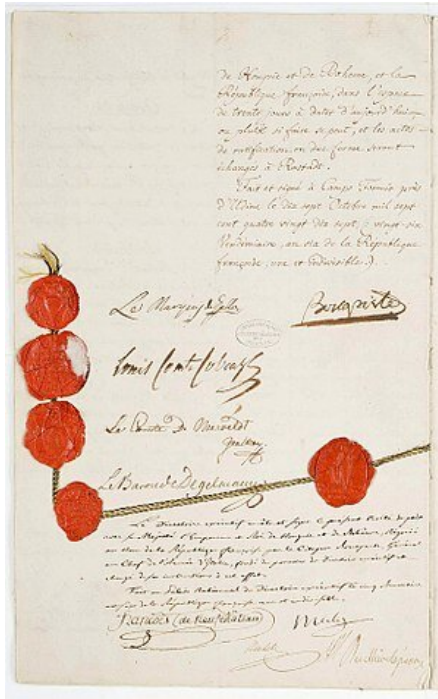 de Hongrie et de Boheme, et la
République française, dans l'espace
de trente jours à dater d'aujourd'hui
ou plutôt si faire se peut, et les actes
de ratification en due forme seront
échangés à Rastadt.
Fait et signé à Campo Formio près
d'Udine le dix sept Octobre mil sept
cent quatre vingt dix sept, vingt-six
Vendemiaire, an six de la République
française, une et indivisible.
Le Marquis de Gallo
Bonaparte
Louis Comte Cobenzl
Le Comte De Merveldt
Le Baron de Degelmann
Le Directoire exécutif arrête et signe le présent traité de paix
avec sa Majesté l'Empereur et Roi de Hongrie et de Bohême, négocié
au nom de la République française par le Citoyen Bonaparte, Général
en Chef de l'Armée d'Italie, fondé de pouvoirs du Directoire exécutif et
chargé de ses instructions à cet effet.
Fait au Palais National du Directoire exécutif le cinq Brumaire
an six de la République française une et indivisible.
François (de Neufchateau)
Merlin